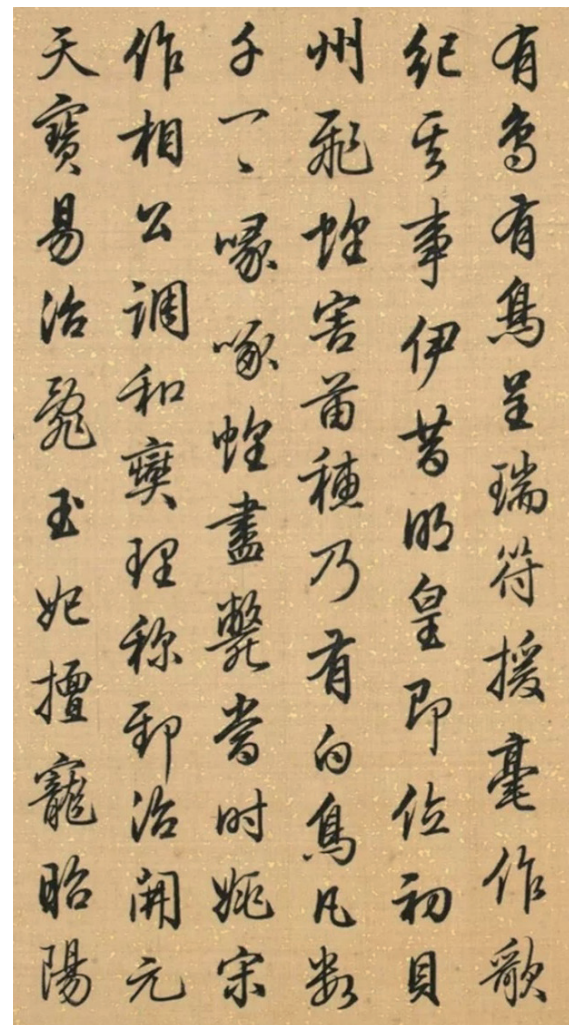 有鳥有鳥呈瑞符援毫作歌
紀其事伊昔明皇即位初貝
州飛蝗害苗穗乃有白鳥凡數
千一〻喙啄蝗盡斃當时姚宋
作相公調和燮理称郅治開元
天寶易治亂玉妃擅寵昭陽